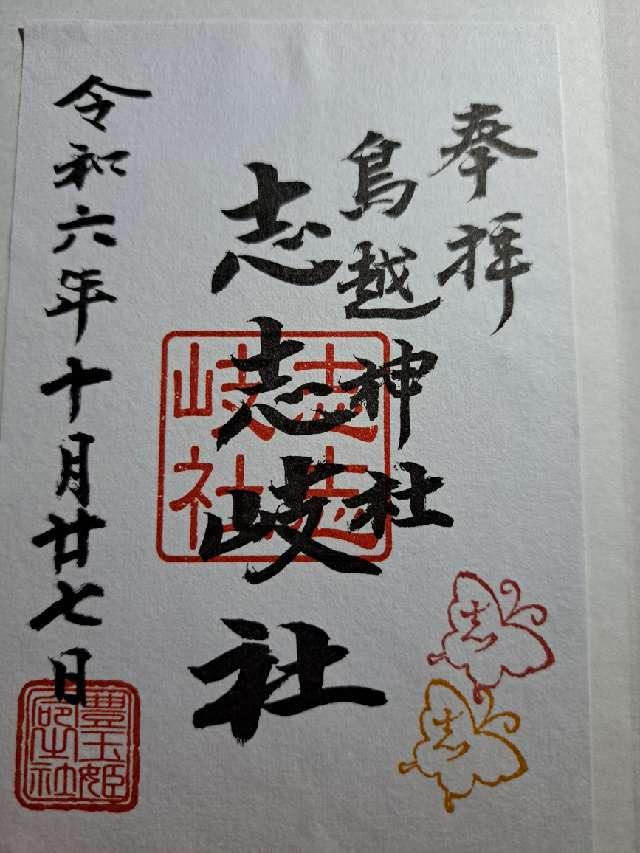 奉拝
鳥越神社
志志岐社
志志岐社
令和六年十月廿七日
豊玉姫
志
志